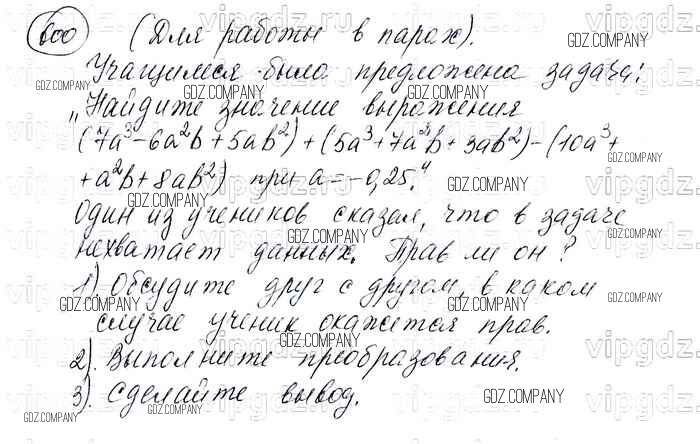 600 (Для работы в парах).
Учащимся было предложена задача:
„Найдите значение выражения
(7a³-6a²b+5ab²)+(5a³+7a²b+3ab²)-(10a³+
+a²b+8ab²) при a=-0,25."
Один из учеников сказал, что в задаче
нехватает данных. Прав ли он?
1). Обсудите друг с другом, в каком
случае ученик окажется прав.
2). Выполните преобразования.
3). Сделайте вывод.